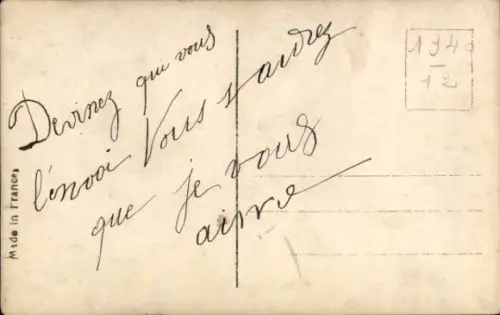 Devinez que vous
l'envoi Vous saurez
que je vous
aime
1940
12
Made in France